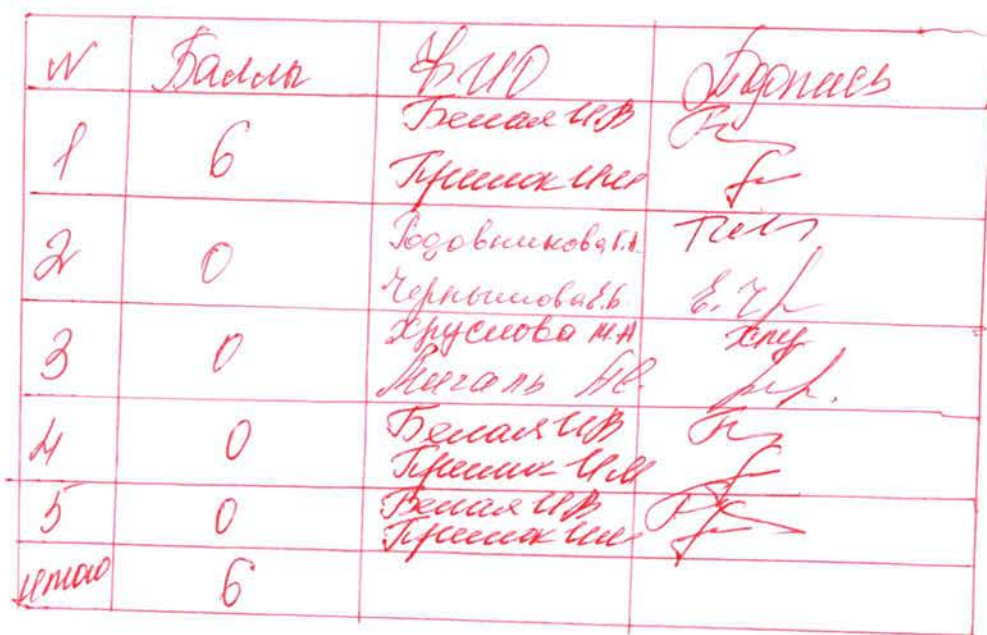 N Баллы ФИО Подпись
1 6 Белая И В
Гришок ИМ
2 0 Родовникова Г.А.
Чернышова Е.В. Е. Чр
3 0 Хруслова М.А Хру
Мигаль
4 0 Белая И В
Гришок И М
5 0 Белая И В
Гришок ИМ
Итого 6